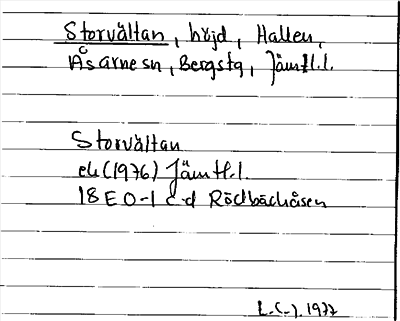 Storvältan, höjd, Hallen,
Åsarne sn, Bergstg, Jämtl.l.
Storvältan
ek (1976) Jämtl.l.
18 E 0-1 c-d Rödbäcksåsen
L.(-). 1977